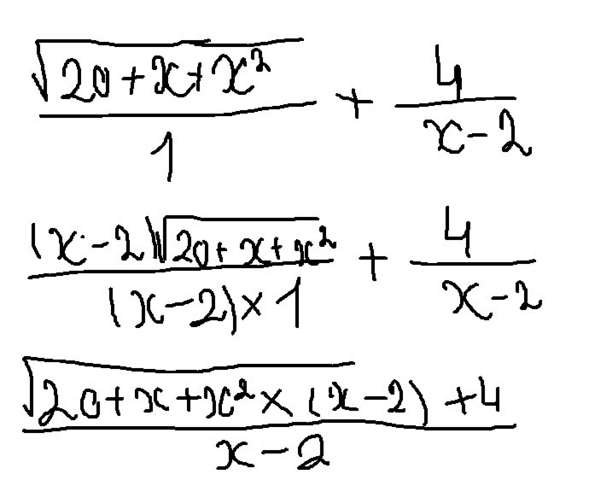 \frac{\sqrt{20+x+x^2}}{1} + \frac{4}{x-2}
\frac{(x-2)\sqrt{20+x+x^2}}{(x-2)\times 1} + \frac{4}{x-2}
\frac{\sqrt{20+x+x^2\times(x}-2)+4}{x-2}